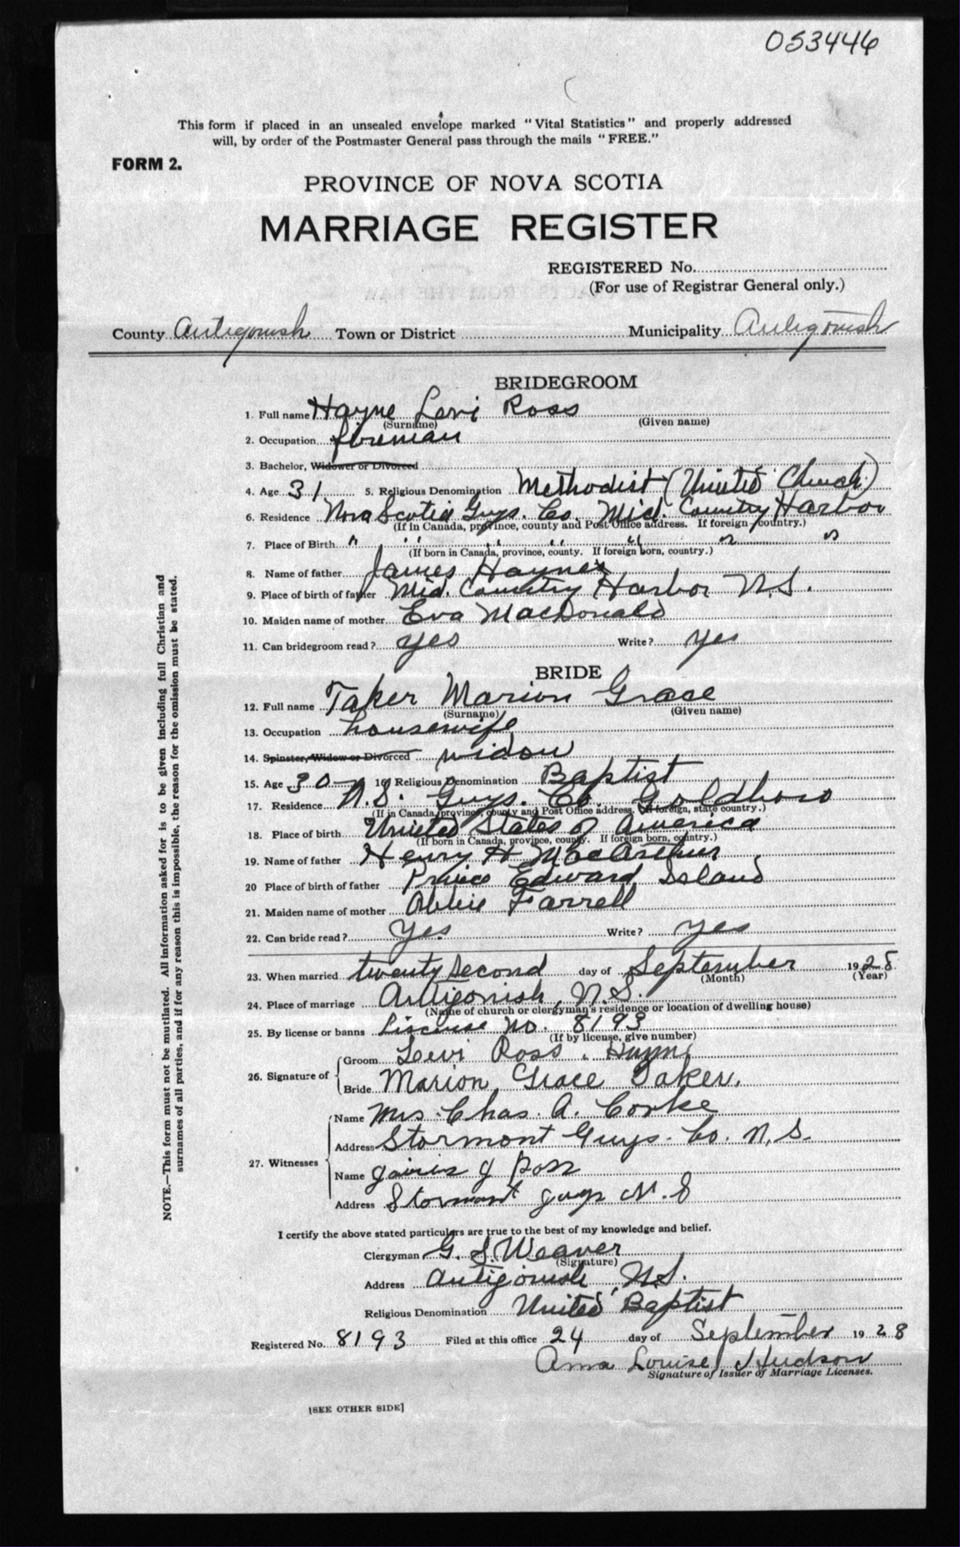 053446
This form if placed in an unsealed envelope marked "Vital Statistics" and properly addressed
will, by order of the Postmaster General pass through the mails "FREE."
FORM 2.
PROVINCE OF NOVA SCOTIA
MARRIAGE REGISTER
REGISTERED No.
(For use of Registrar General only.)
County Antigonish Town or District Municipality Antigonish
BRIDEGROOM
1. Full name Hayne Levi Ross
(Surname) (Given name)
2. Occupation foreman
3. Bachelor, Widower or Divorced
4. Age 31 5. Religious Denomination Methodist (United Church)
6. Residence Nova Scotia Guys. Co. Mid. Country Harbor
(If in Canada, province, county and Post Office address. If foreign country.)
7. Place of Birth " " " " " " "
(If born in Canada, province, county. If foreign born, country.)
8. Name of father James Haynes
9. Place of birth of father Mid. Country Harbor N.S.
10. Maiden name of mother Eva MacDonald
11. Can bridegroom read? yes Write? yes
BRIDE
12. Full name Taker Marion Grace
(Surname) (Given name)
13. Occupation housewife
14. Spinster, Widow or Divorced widow
15. Age 30 16 Religious Denomination Baptist
17. Residence N.S. Guys. Co. Goldboro
(If in Canada, province, county and Post Office address, If foreign, state country.)
18. Place of birth United States of America
(If born in Canada, province, county. If foreign born, country.)
19. Name of father Henry H MacArthur
20 Place of birth of father Prince Edward Island
21. Maiden name of mother Abbie Farrell
22. Can bride read? Yes Write? yes
23. When married twenty second day of September 1928
(Month) (Year)
24. Place of marriage Antigonish, N.S.
(Name of church or clergyman's residence or location of dwelling house)
25. By license or banns License No. 8193
(If by license, give number)
26. Signature of
Groom Levi Ross
Bride Marion Grace Taker.
27. Witnesses
Name Mrs. Chas. A. Corke
Address Stormont Guys. Co. N.S.
Name J Ross
Address Stormont Guys N.S
I certify the above stated particulars are true to the best of my knowledge and belief.
Clergyman G. S. Weaver
(Signature)
Address Antigonish, N.S.
Religious Denomination United Baptist
Registered No. 8193 Filed at this office 24 day of September 1928
Anna Louise Hudson
Signature of Issuer of Marriage Licenses.
[SEE OTHER SIDE]
NOTE.—This form must not be mutilated. All information asked for is to be given including full Christian and
surnames of all parties, and if for any reason this is impossible, the reason for the omission must be stated.